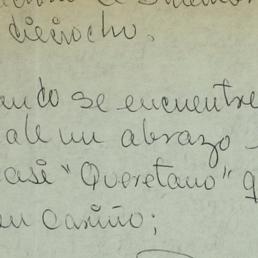 dieciocho.
se encuentre
un abrazo -
casi "Queretano" q
su cariño;